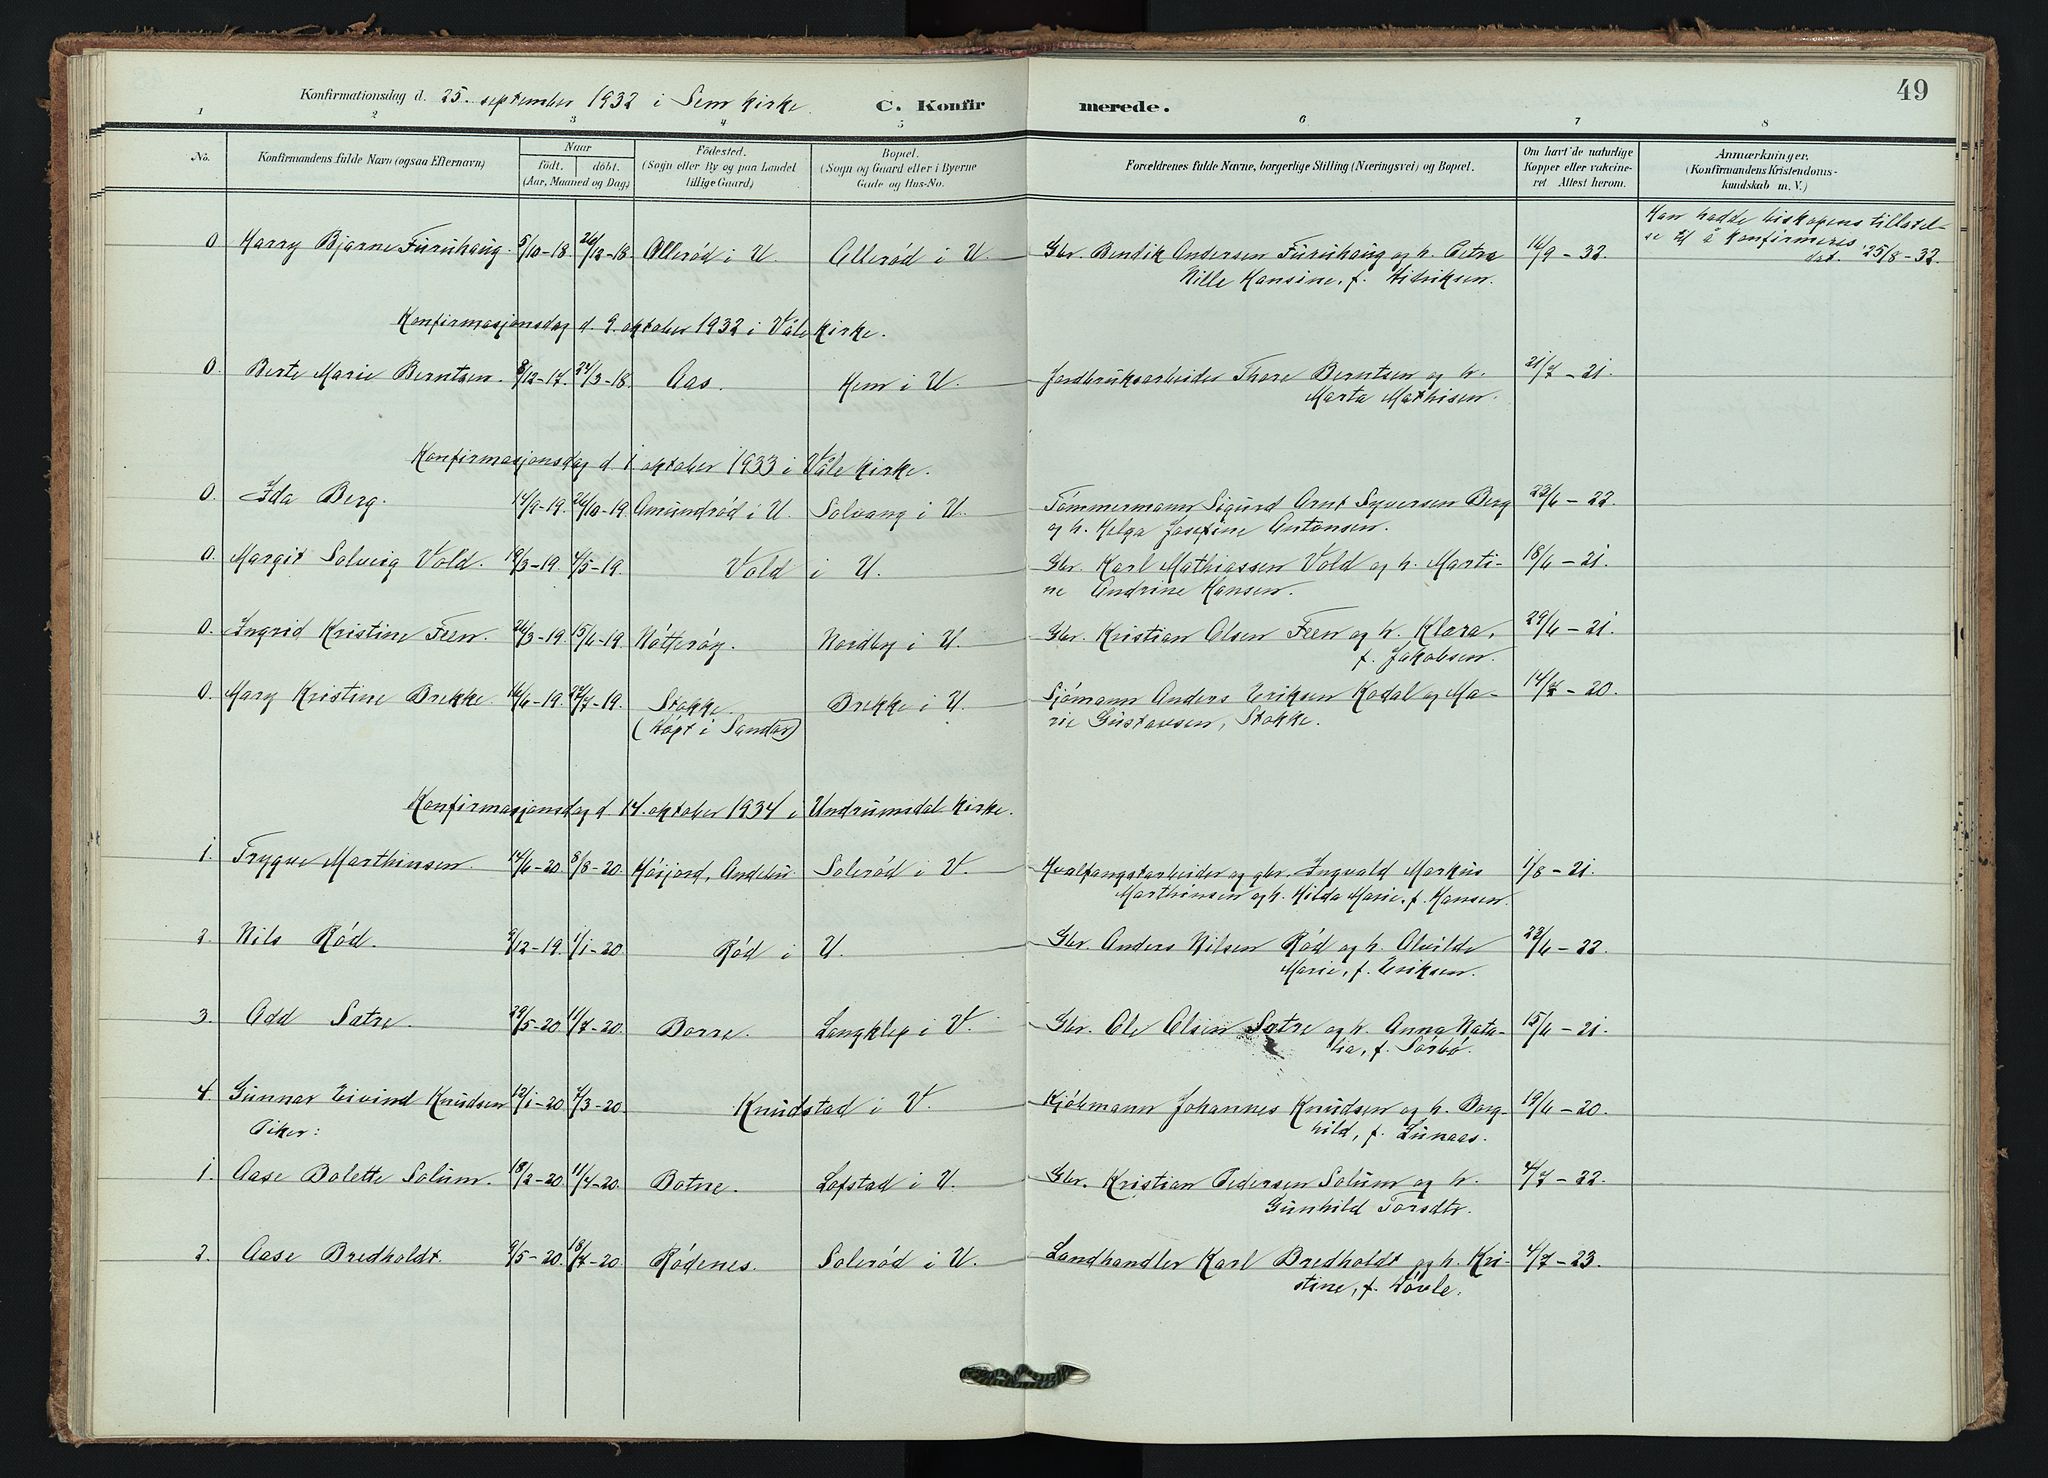 49
Konfirmationsdag d. 25. september 1932 i Sem kirke. C. Konfirmerede.
1 2 3 4 5 6 7 8
No. Konfirmandens fulde Navn (ogsaa Efternavn) Naar født. døbt. (Aar, Maaned og Dag) Fødested. (Sogn eller By og paa Landet tillige Gaard) Bopæl. (Sogn og Gaard eller i Byerne Gade og Hus-No. Forældrenes fulde Navne, borgerlige Stilling (Næringsvei) og Bopæl. Om havt de naturlige Kopper eller vakcineret Attest herom. Anmærkninger. (Konfirmandens Kristendomskundskab m. V.)
0 Harry Bjarne Furuhaug. 5/10-18. 26/12-18. Ollerød i U. Ollerød i U. Gbr. Bendik Andersen Furuhaug og h. Petra 16/9-32. Han hadde biskopens tillatel-
Nille Hansine, f. Didriksen. se til å konfirmeres
dat. 25/8-32.
Konfirmasjonsdag d. 9. oktober 1932 i Våle kirke.
0. Berte Marie Berntsen. 8/12-17. 24/3-18. Aas. Hem i U. Jordbruksarbeider Thore Berntsen og h. 21/7-21.
Marta Mathisen.
Konfirmasjonsdag d. 1. oktober 1933 i Våle kirke.
0. Ida Berg. 14/9-19. 26/10-19. Amundrød i U. Solvang i U. Tømmermann Sigurd Arnt Syversen Berg 23/6-22.
og h. Helga Josefine Antonsen.
0. Margit Solveig Vold. 19/3-19. 4/5-19. Vold i U. Gbr. Karl Mathiassen Vold og h. Marti- 18/6-21.
ne Andrine Hansen.
0. Ingrid Kristine Feen. 26/3-19. 15/6-19. Nøtterøy. Nordby i U. Gbr. Kristian Olsen Feen og h. Klara, 29/6-21.
f. Jakobsen.
0. Mary Kristine Brekke. 16/6-19. 27/7-19. Stokke. Brekke i U. Sjømann Anders Eriksen Kodal og Ma- 14/7-20.
(døpt i Sandar) rie Gustavsen, Stokke.
Konfirmasjonsdag d. 14. oktober 1934 i Undrumsdal kirke.
1. Trygve Marthinsen. 14/6-20. 8/8-20. Høijord, Andebu. Solerød i V. Hvalfangstarbeider og gbr. Ingvald Markus 1/8-21.
Marthinsen og h. Hilda Marie, f. Hansen.
2. Nils Rød. 9/12-19. 1/1-20. Rød i U. Gbr. Anders Nilsen Rød og h. Alvilde 22/6-22.
Marie, f. Eriksen.
3. Odd Sætre. 29/5-20. 11/7-20. Borre. Langklep i V. Gbr. Ole Olsen Sætre og h. Anna Nata- 15/6-21.
lia, f. Sørbø.
4. Gunnar Eivind Knudsen 12/1-20. 7/3-20. Knudstad i V. Kjøbmann Johannes Knudsen og h. Borg- 19/6-20.
Piker: hild, f. Lunaas.
1. Aase Bolette Solum. 18/2-20. 11/4-20. Botne. Lofstad i U. Gbr. Kristian Pedersen Solum og h. 4/7-22.
Gunhild Torsdtr.
2. Aase Bredholdt. 9/5-20. 18/7-20. Rødenes. Solerød i U. Landhandler Karl Bredholdt og h. Kri- 4/7-23.
stine, f. Døvle.